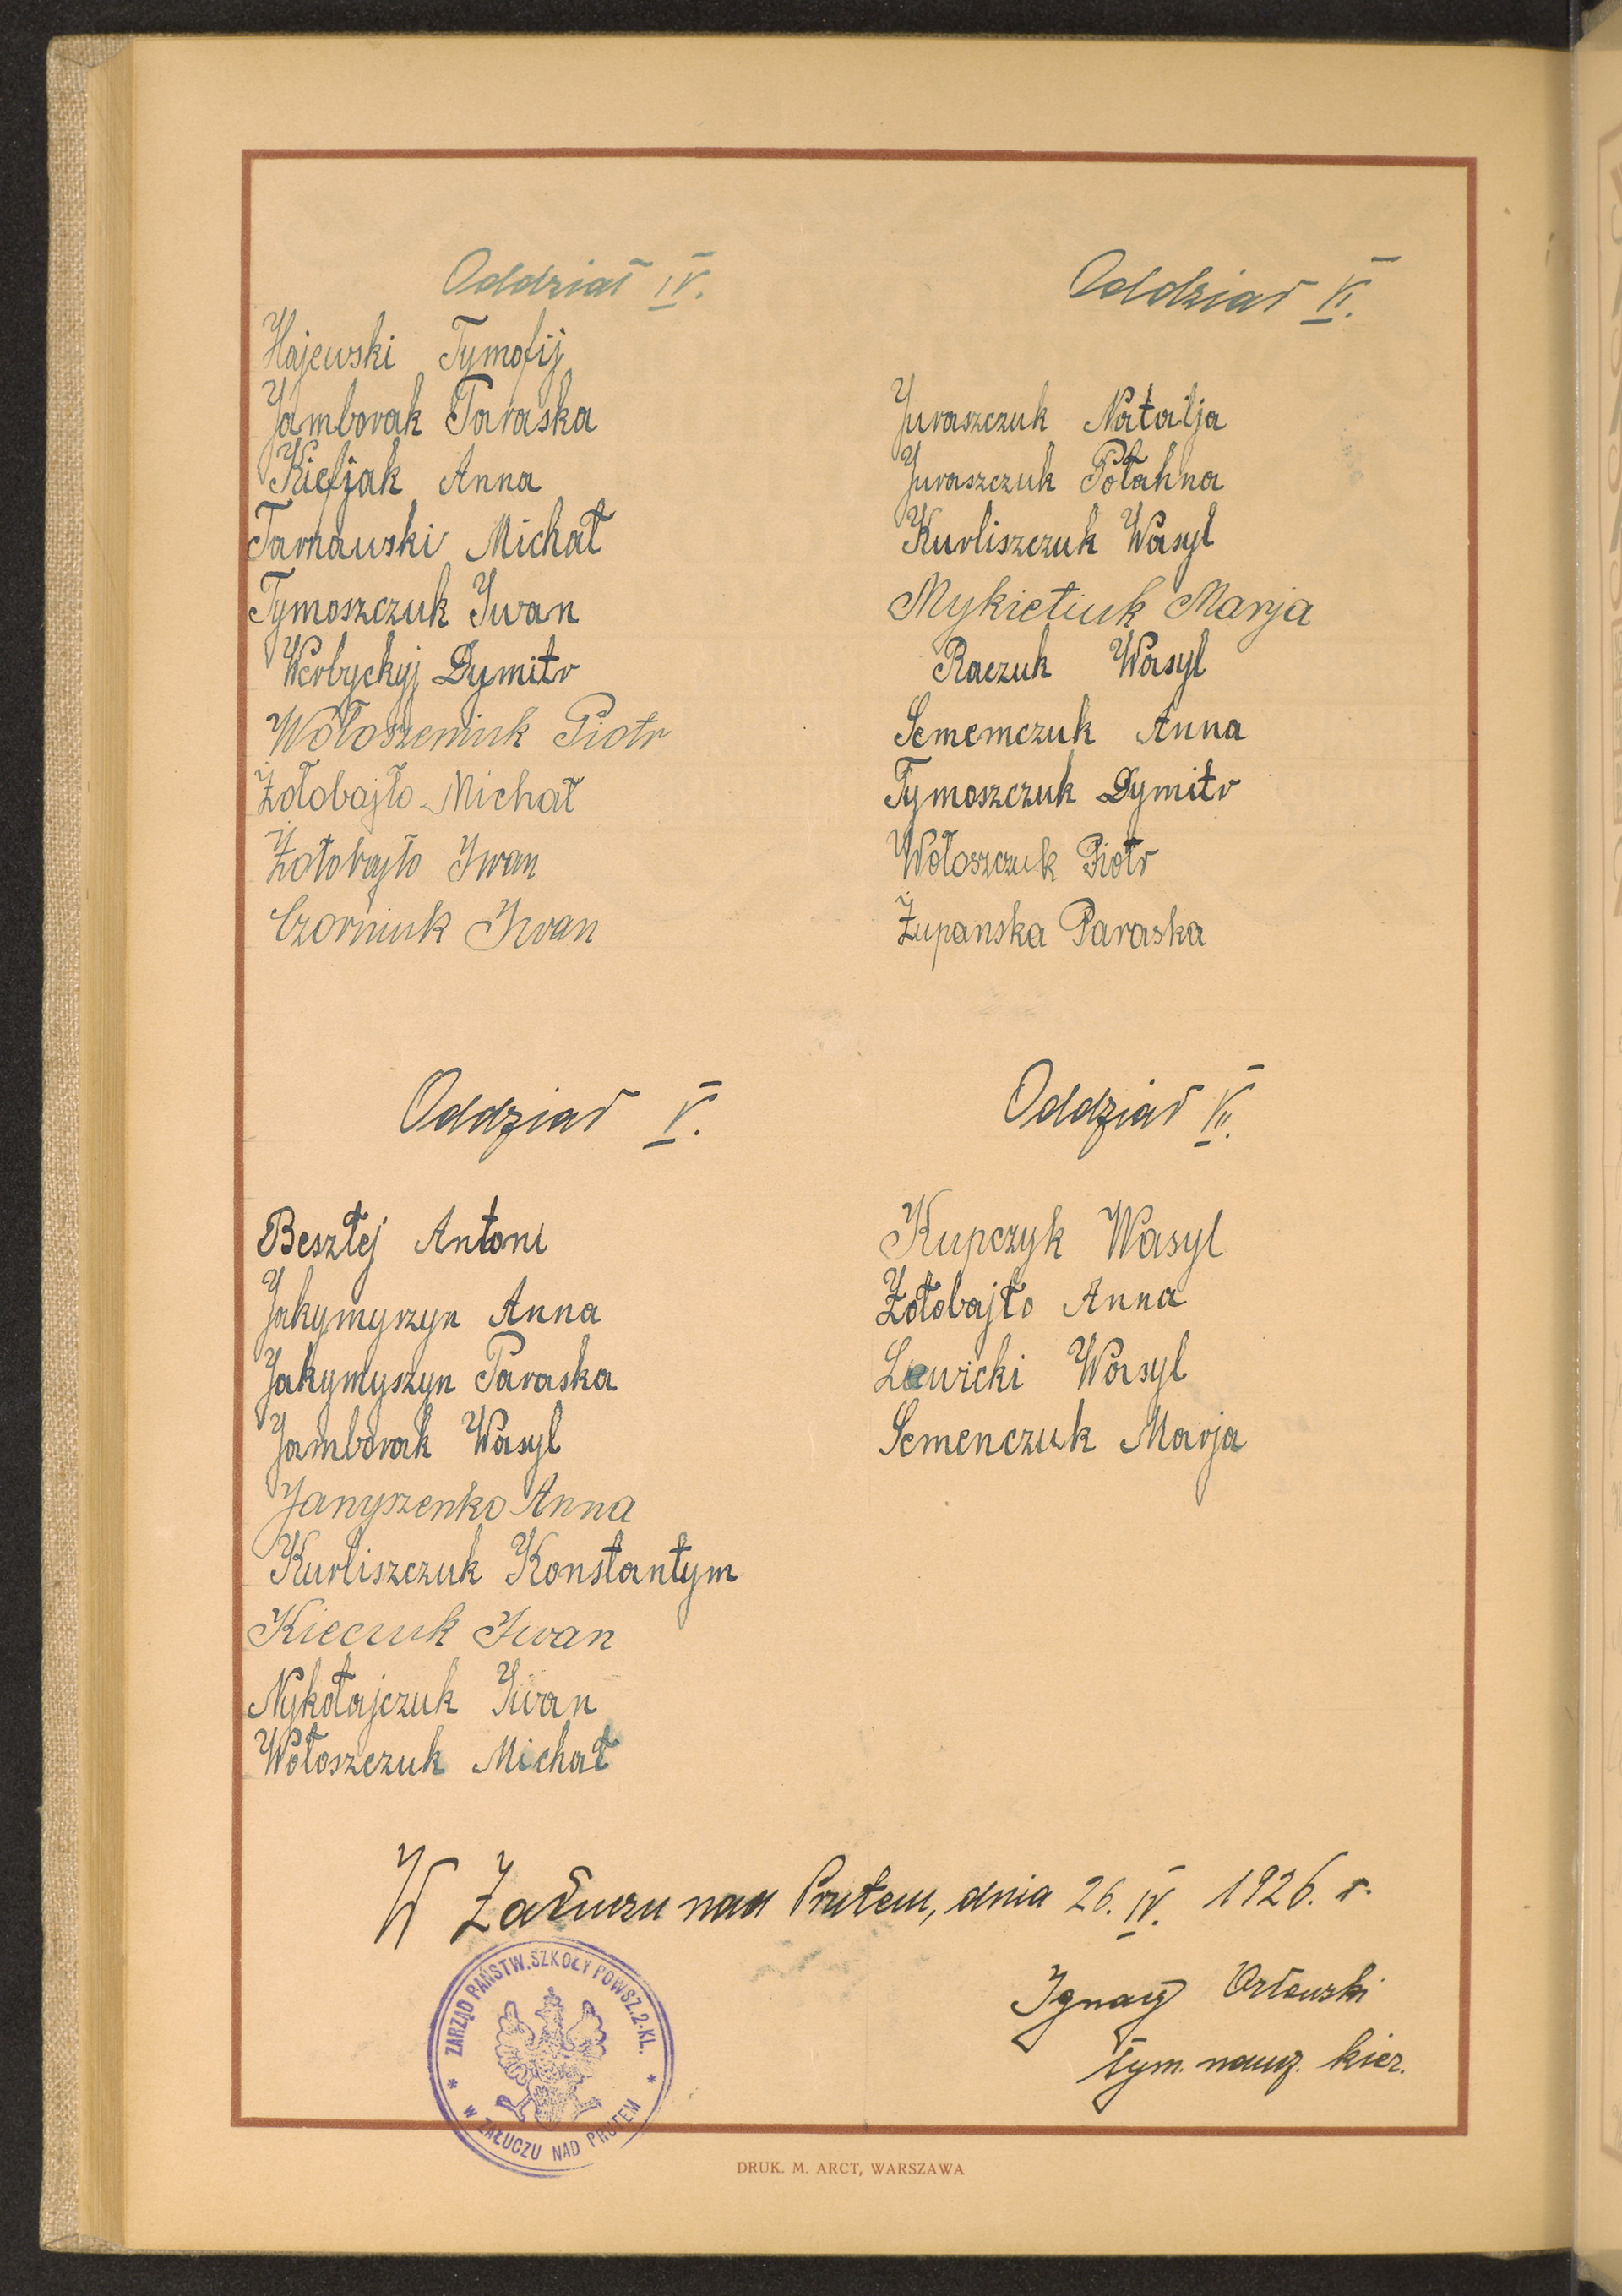 Oddział IV.
Hajewski Tymofij
Jamborak Paraska
Kiefjak Anna
Tarnawski Michał
Tymoszczuk Iwan
Werbyckyj Dymitr
Wołoszeniuk Piotr
Żołobajło Michał
Żołobajło Iwan
Czorniuk Iwan
Oddział V.
Besztej Antoni
Jakymyszyn Anna
Jakymyszyn Paraska
Jamborak Wasyl
Janyszenko Anna
Kurliszczuk Konstantym
Kieczuk Iwan
Nykołajczuk Iwan
Wołoszczuk Michał
Oddział VI.
Juraszczuk Natalja
Juraszczuk Połahna
Kurliszczuk Wasyl
Mykietiuk Marja
Raczuk Wasyl
Sememczuk Anna
Tymoszczuk Dymitr
Wołoszczuk Piotr
Żupanska Paraska
Oddział VII.
Kupczyk Wasyl
Żołobajło Anna
Lewicki Wasyl
Semenczuk Marja
W Załuczu nad Prutem, dnia 26. IV. 1926. r.
Ignacy Orłowski
tym. naucz. kier.
ZARZĄD PAŃSTW. SZKOŁY POWSZ. 2-KL.
* W ZAŁUCZU NAD PRUTEM *
DRUK. M. ARCT, WARSZAWA